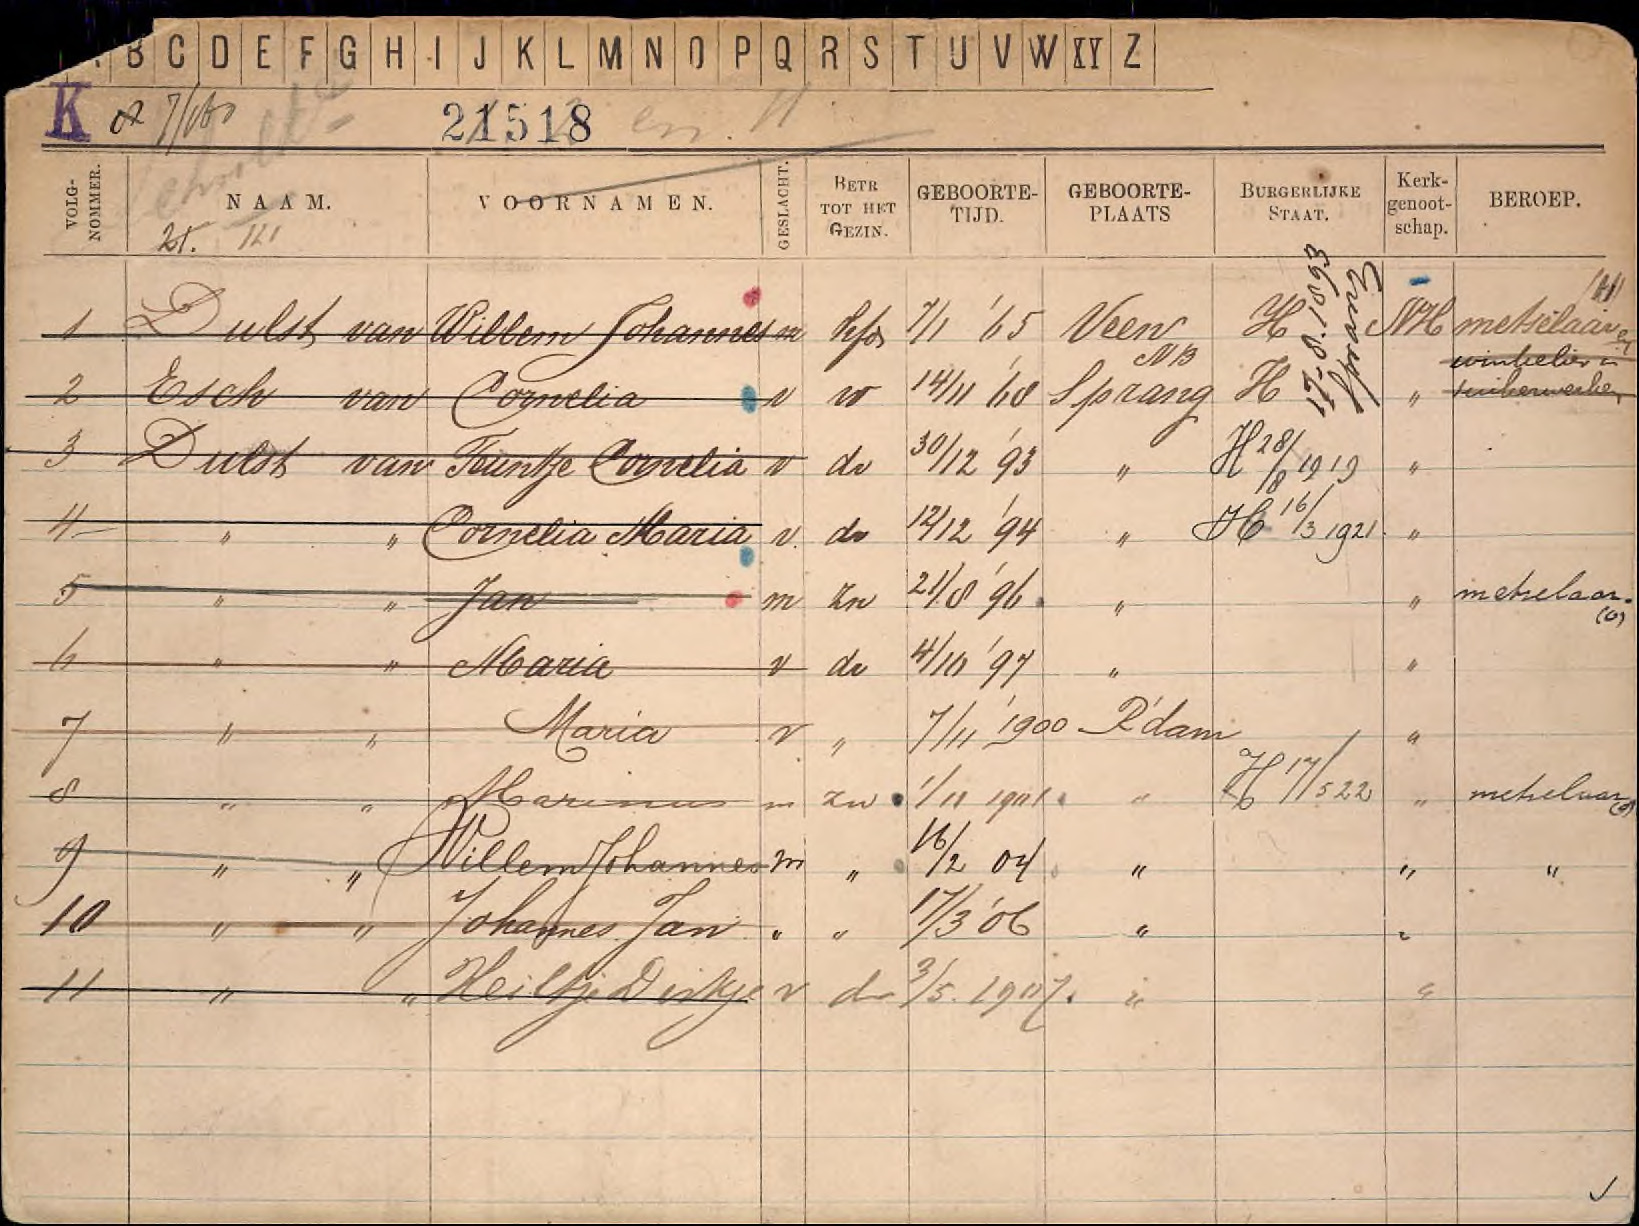 B C D E F G H I J K L M N O P Q R S T U V W XY Z
K 21518 en 11
VOLG-NOMMER. NAAM. VOORNAMEN. GESLACHT. BETR TOT HET GEZIN. GEBOORTE-TIJD. GEBOORTE-PLAATS BURGERLIJKE STAAT. Kerk-genoot-schap. BEROEP.
1 Dulst van Willem Johannes m hfd 7/1 '65 Veen H NH metselaar
N B winkelier
2 Esch van Cornelia v w 14/11 '68 Sprang H „ suikerwerker
Sprang 21-8-1893
3 Dulst van Teuntje Cornelia v dr 30/12 '93 „ H 28/8 1919 „
4 „ „ Cornelia Maria v. dr 12/12 '94 „ H 16/3 1921. „
5 „ „ Jan m zn 21/8 '96. „ „ metselaar. (o)
6 „ „ Maria v dr 4/10 '97 „ „
7 „ „ Maria v „ 7/11 1900 R'dam „
8 „ „ Marinus m zn 1/11 1901 „ H 17/5 22 „ metselaar (o)
9 „ „ Willem Johannes m „ 16/2 04 „ „ „
10 „ „ Johannes Jan „ „ 17/3 '06 „ „
11 „ „ Heiltje Dirkje v dr 3/5. 1907. „ „